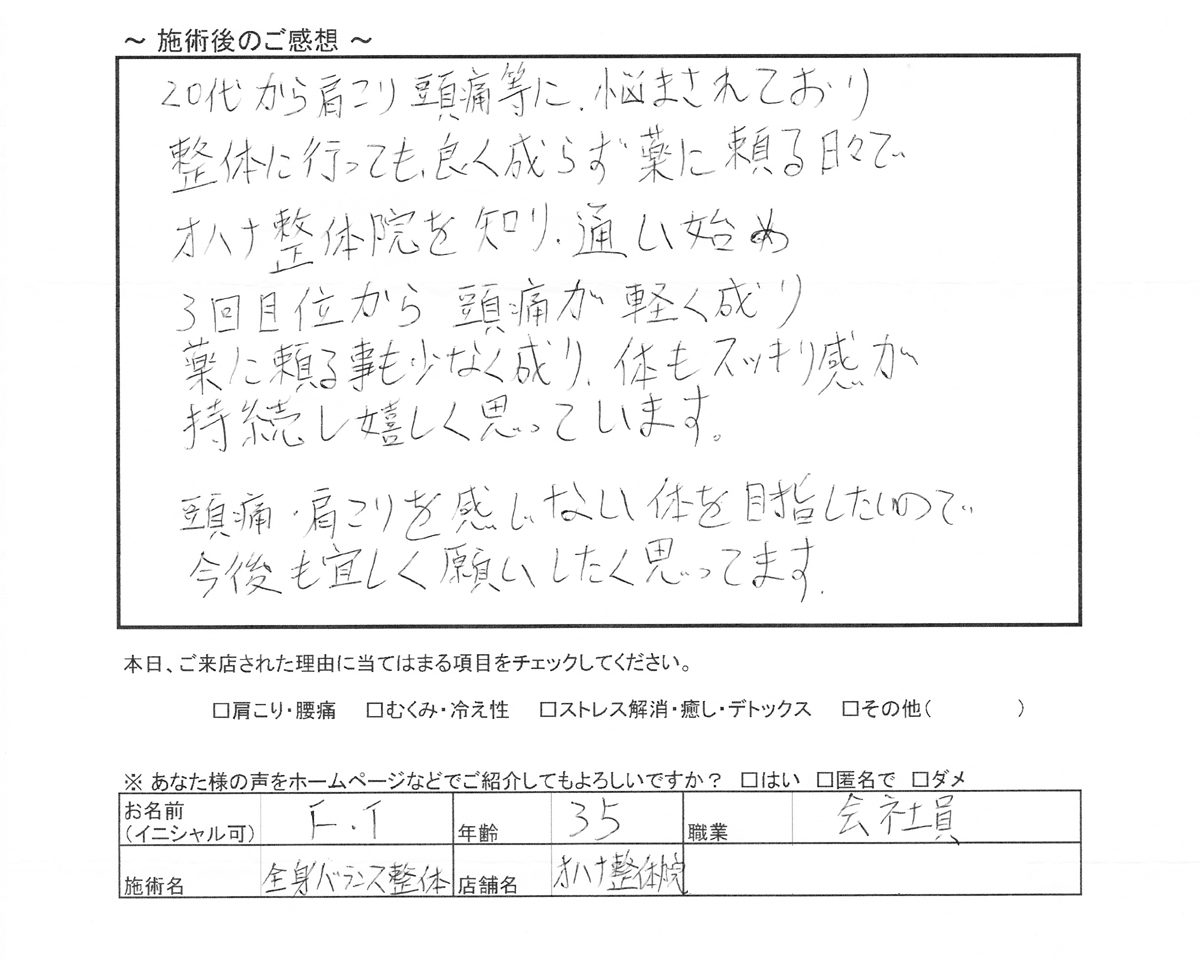 ～ 施術後のご感想 ～
20代から肩こり頭痛等に、悩まされており
整体に行っても、良く成らず薬に頼る日々で
オハナ整体院を知り、通い始め
3回目位から 頭痛が軽く成り
薬に頼る事も少なく成り、体もスッキリ感が
持続し嬉しく思っています。
頭痛・肩こりを感じない体を目指したいので
今後も宜しく願いしたく思ってます.
本日、ご来店された理由に当てはまる項目をチェックしてください。
□肩こり・腰痛 □むくみ・冷え性 □ストレス解消・癒し・デトックス □その他( )
※ あなた様の声をホームページなどでご紹介してもよろしいですか？ □はい □匿名で □ダメ
お名前
(イニシャル可) F.T 年齢 35 職業 会社員
施術名 全身バランス整体 店舗名 オハナ整体院